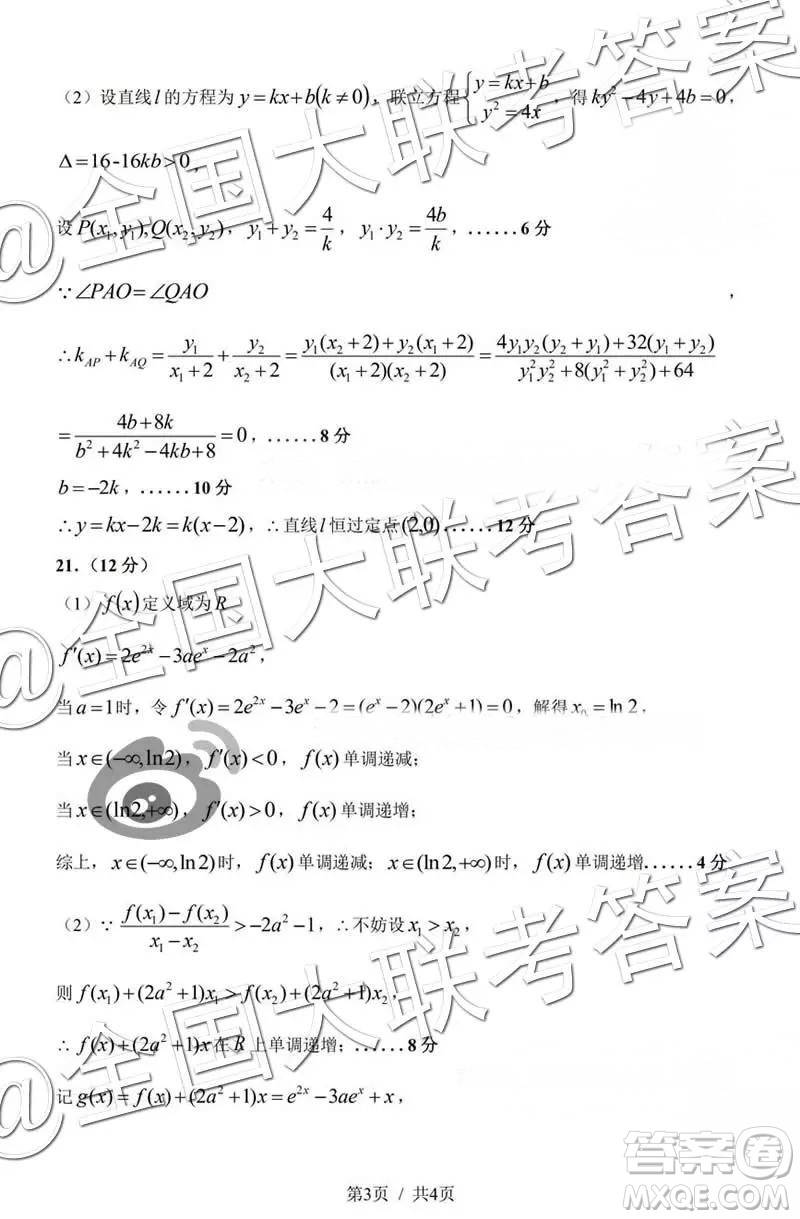 （2）设直线l的方程为 y=kx+b(k≠0)，联立方程{y=kx+b, y²=4x，得ky²-4y+4b=0，
Δ=16-16kb>0，
设P(x₁,y₁),Q(x₂,y₂)，y₁+y₂=4/k，y₁·y₂=4b/k，......6 分
∵∠PAO=∠QAO，
∴k_AP+k_AQ=y₁/(x₁+2)+y₂/(x₂+2)=(y₁(x₂+2)+y₂(x₁+2))/((x₁+2)(x₂+2))=(4y₁y₂(y₂+y₁)+32(y₁+y₂))/(y₁²y₂²+8(y₁²+y₂²)+64)
=(4b+8k)/(b²+4k²-4kb+8)=0，......8 分
b=-2k，......10 分
∴y=kx-2k=k(x-2)，∴直线l恒过定点(2,0)......12 分
21.（12 分）
（1）f(x)定义域为R
f′(x)=2e^{2x}-3ae^x-2a²，
当a=1时，令f′(x)=2e^{2x}-3e^x-2=(e^x-2)(2e^x+1)=0，解得x₀=ln2，
当x∈(-∞,ln2)，f′(x)<0，f(x)单调递减；
当x∈(ln2,+∞)，f′(x)>0，f(x)单调递增；
综上，x∈(-∞,ln2)时，f(x)单调递减；x∈(ln2,+∞)时，f(x)单调递增......4 分
（2）∵(f(x₁)-f(x₂))/(x₁-x₂)>-2a²-1，∴不妨设x₁>x₂，
则f(x₁)+(2a²+1)x₁>f(x₂)+(2a²+1)x₂，
∴f(x)+(2a²+1)x在R上单调递增；......8 分
记g(x)=f(x)+(2a²+1)x=e^{2x}-3ae^x+x，
第3页 / 共4页
@全国大联考答案
@全国大联考答案
@全国大联考答案
答案卷
MXQE.COM